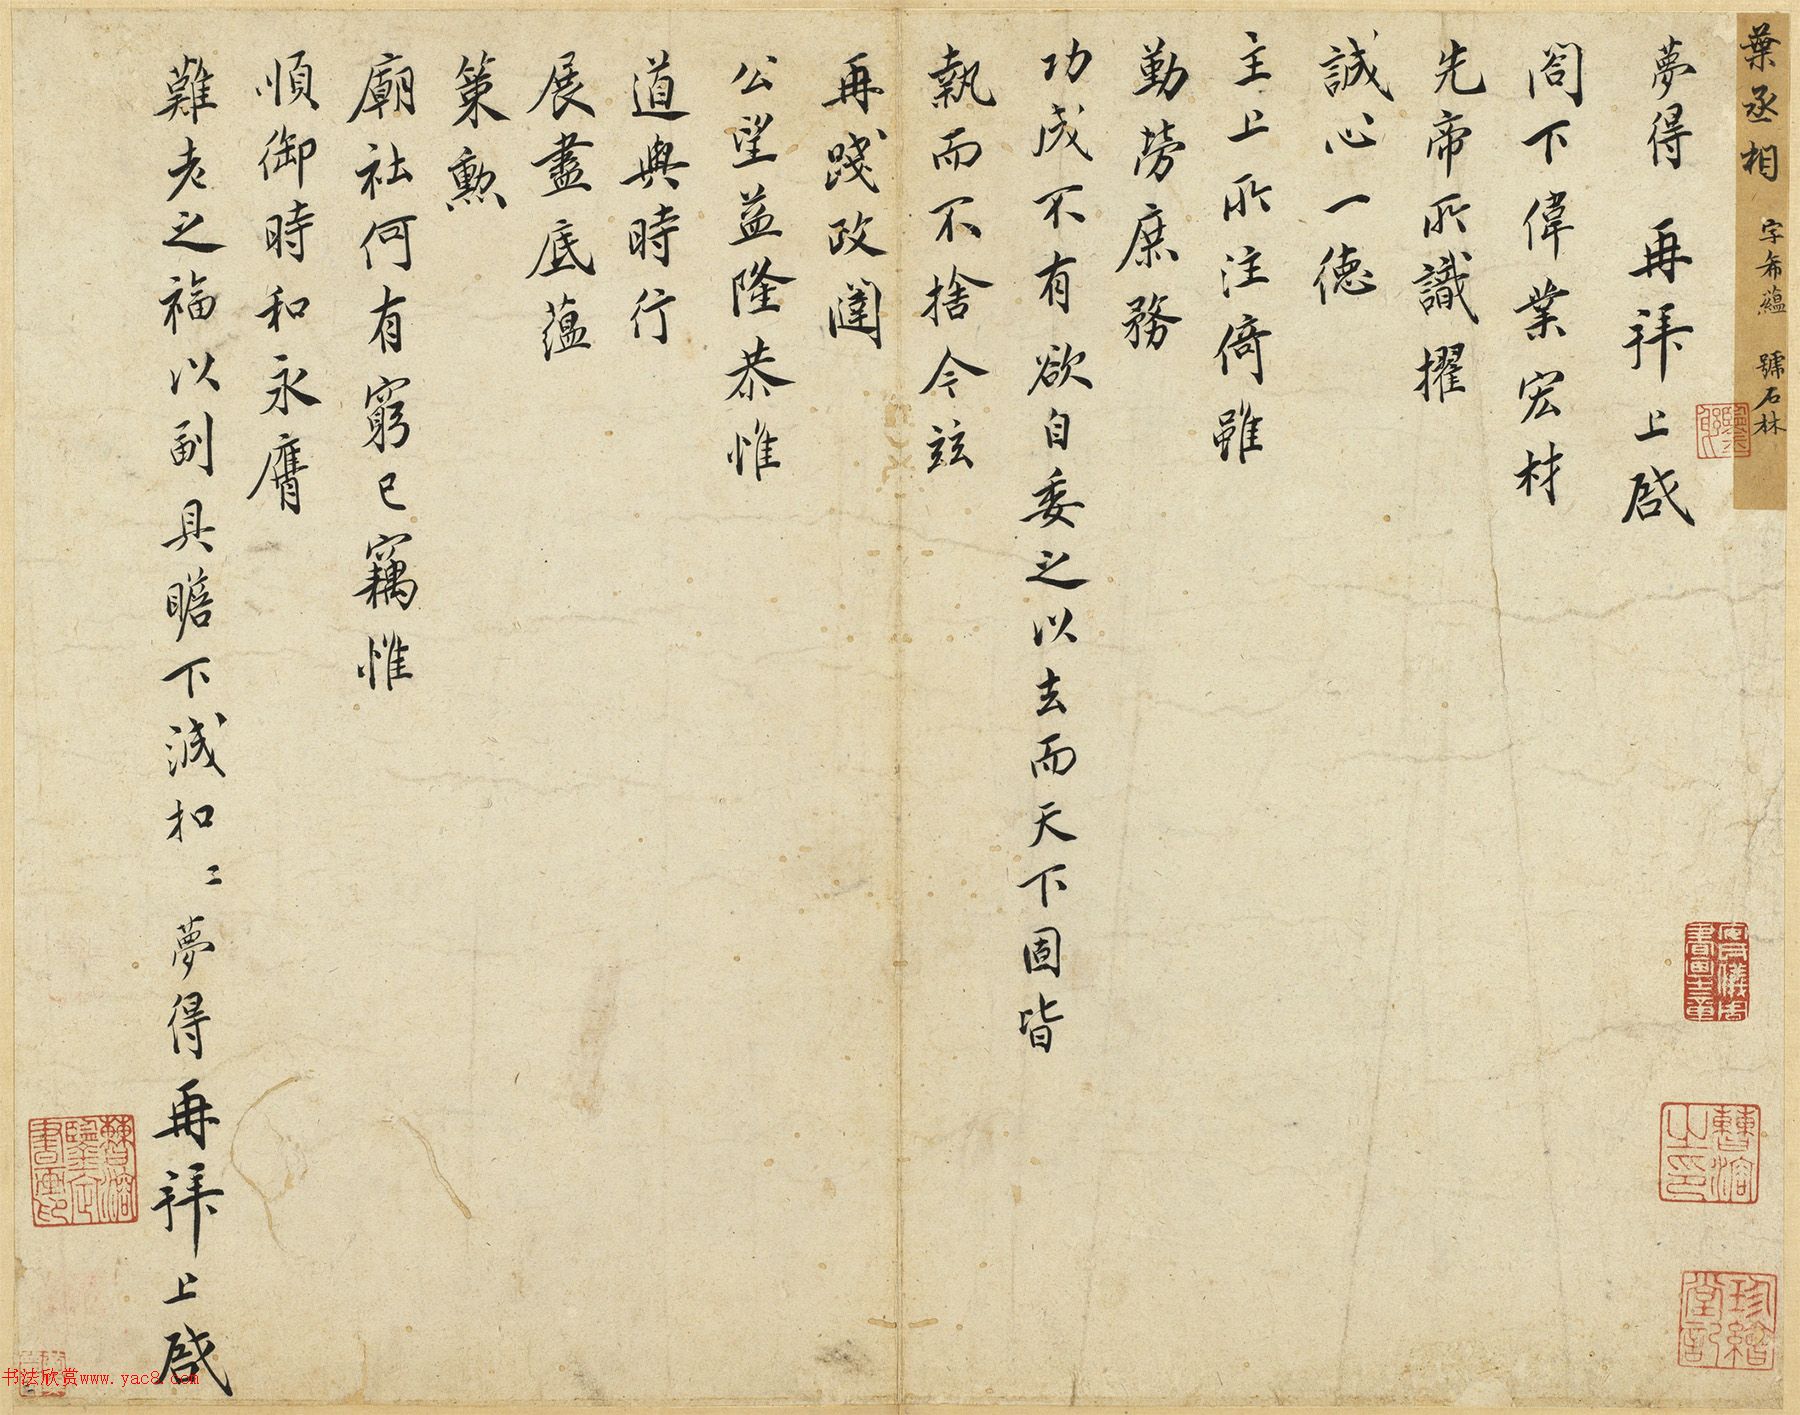 葉丞相 字希蘊 號石林
夢得再拜上啟
閤下偉業宏材
先帝所識擢
誠心一德
主上所注倚雖
勤勞庶務
功成不有欲自委之以去而天下固皆
執而不捨今茲
再踐政闈
公望益隆恭惟
道與時行
展盡底蘊
策勲
廟社何有窮已竊惟
順御時和永膺
難老之福以副具瞻下誠扣〻夢得再拜上啟
安儀周書畫之章
珍繪堂記
书法欣赏www.yac8.com